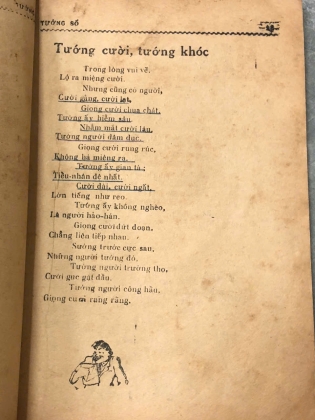 TƯỚNG SỐ
Tướng cười, tướng khóc
Trong lòng vui vẻ.
Lộ ra miệng cười.
Nhưng cũng có người,
Cười gằng, cười lạt,
Giọng cười chua chát,
Tướng ấy hiểm sâu
Nhắm mắt cười lâu,
Tướng người dâm dục.
Giọng cười rung rúc,
Không há miệng ra,
Tướng ấy gian tà;
Tiểu-nhân đệ nhất
Cười dài, cười ngất,
Lớn tiếng như reo.
Tướng ấy không nghèo,
Là người hảo-hán.
Giọng cười dứt đoạn.
Chẳng liên tiếp nhau.
Sướng trước cực sau.
Những người tướng đó.
Tướng người trường thọ,
Cười gục gặt đầu.
Tướng người công hầu,
Giọng cười rang rảng.